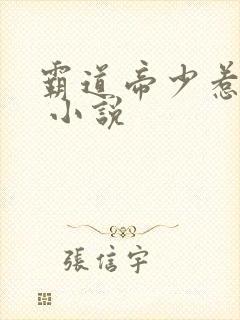 霸道帝少惹
小說
張信宇